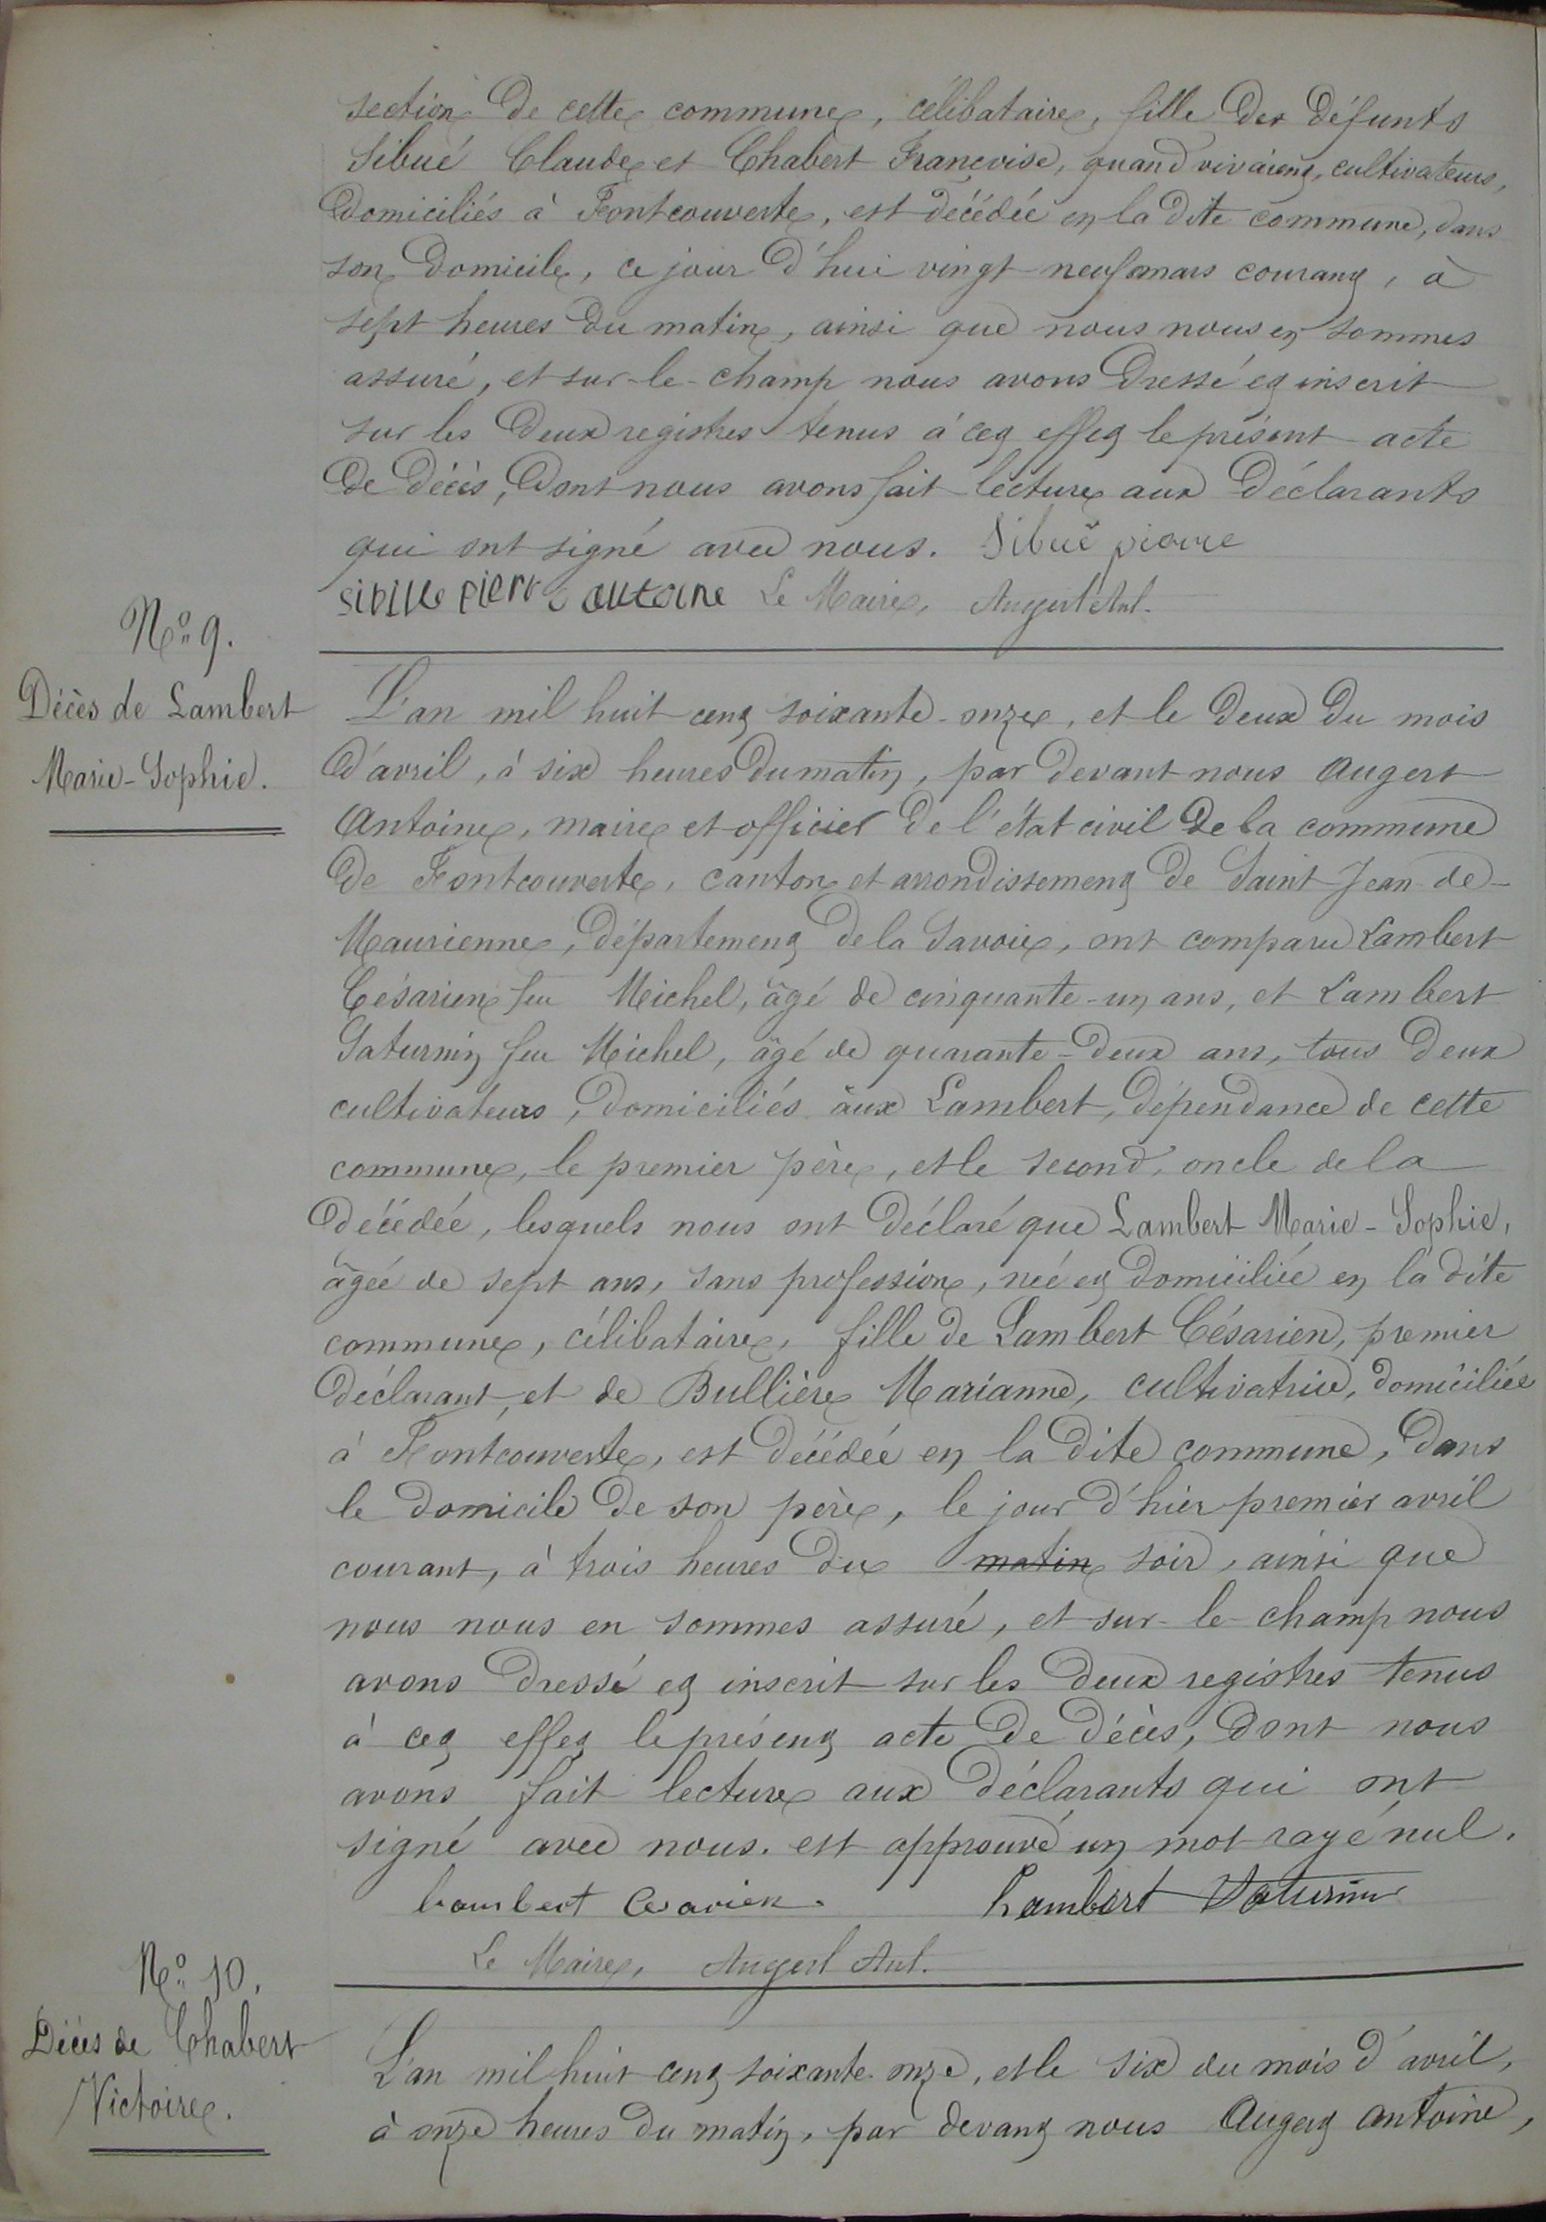 section de cette commune, célibataire, fille des défunts
Sibué Claude et Chabert Françoise, quand vivaient, cultivateurs,
domiciliés à Fontcouverte, est décédée en la dite commune, dans
son domicile, ce jour d'hui vingt-neuf mars courant, à
sept heures du matin, ainsi que nous nous en sommes
assuré, et sur-le-champ nous avons dressé et inscrit
sur les deux registres tenus à cet effet le présent acte
de décès, dont nous avons fait lecture aux déclarants
qui ont signé avec nous. Sibué pierre
Pierre antoine Le Maire, Augert Ant.
N° 9.
Décès de Lambert
Marie-Sophie.
L'an mil huit cent soixante-onze, et le deux du mois
d'avril, à six heures du matin, par devant nous Augert
Antoine, maire et officier de l'état civil de la commune
de Fontcouverte, canton et arrondissement de Saint Jean-de-
Maurienne, département de la Savoie, ont comparu Lambert
Césarien feu Michel, âgé de cinquante-un ans, et Lambert
Saturnin feu Michel, âgé de quarante-deux ans, tous deux
cultivateurs, domiciliés aux Lambert, dépendance de cette
commune, le premier père, et le second, oncle de la
décédée, lesquels nous ont déclaré que Lambert Marie-Sophie,
âgée de sept ans, sans profession, née et domiciliée en la dite
commune, célibataire, fille de Lambert Césarien, premier
déclarant, et de Bullière Marianne, cultivatrice, domiciliée
à Fontcouverte, est décédée en la dite commune, dans
le domicile de son père, le jour d'hier premier avril
courant, à trois heures du matin soir, ainsi que
nous nous en sommes assuré, et sur-le-champ nous
avons dressé et inscrit sur les deux registres tenus
à cet effet le présent acte de décès, dont nous
avons fait lecture aux déclarants qui ont
signé avec nous. est approuvé un mot rayé nul.
Lambert Cesarien. Lambert Saturnin
Le Maire, Augert Ant.
N° 10.
Décès de Chabert
Victoire.
L'an mil huit cent soixante-onze, et le six du mois d'avril,
à onze heures du matin, par devant nous Augert Antoine,